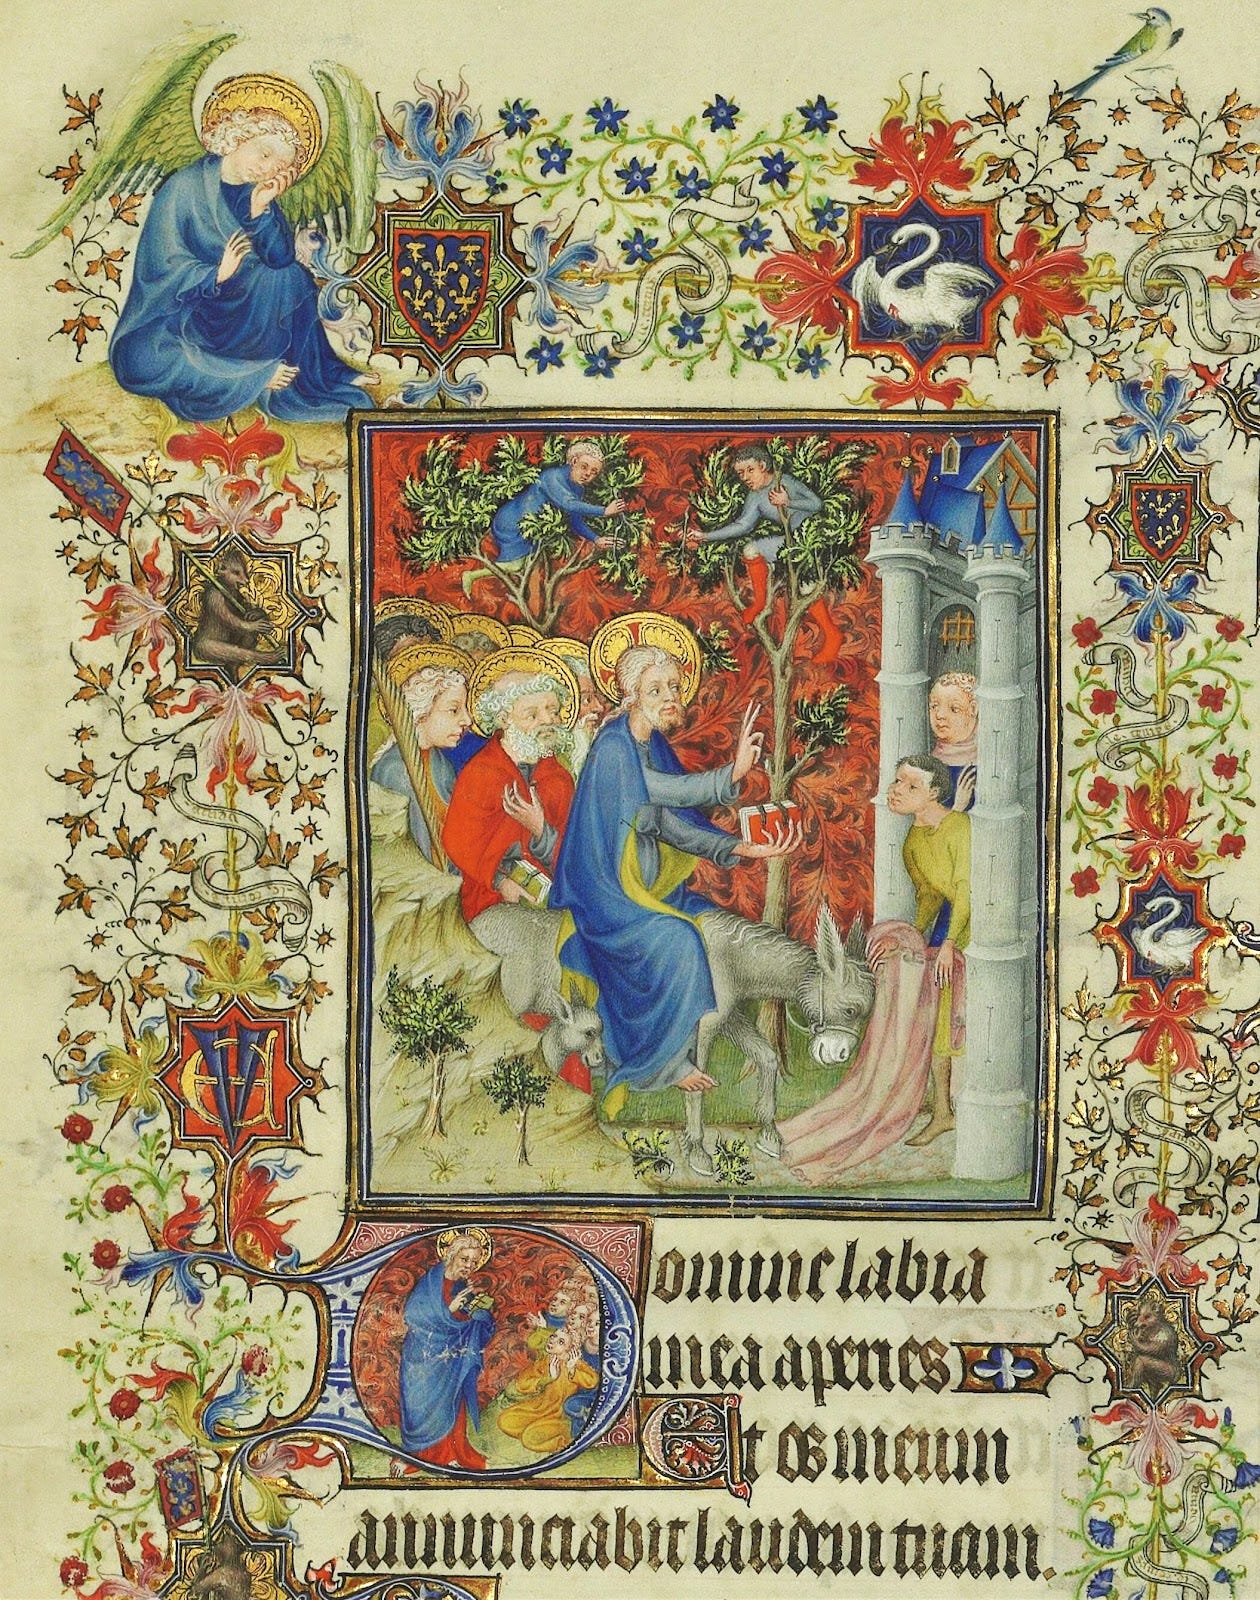 Domine labia
mea aperies
Et os meum
annunciabit laudem tuam.